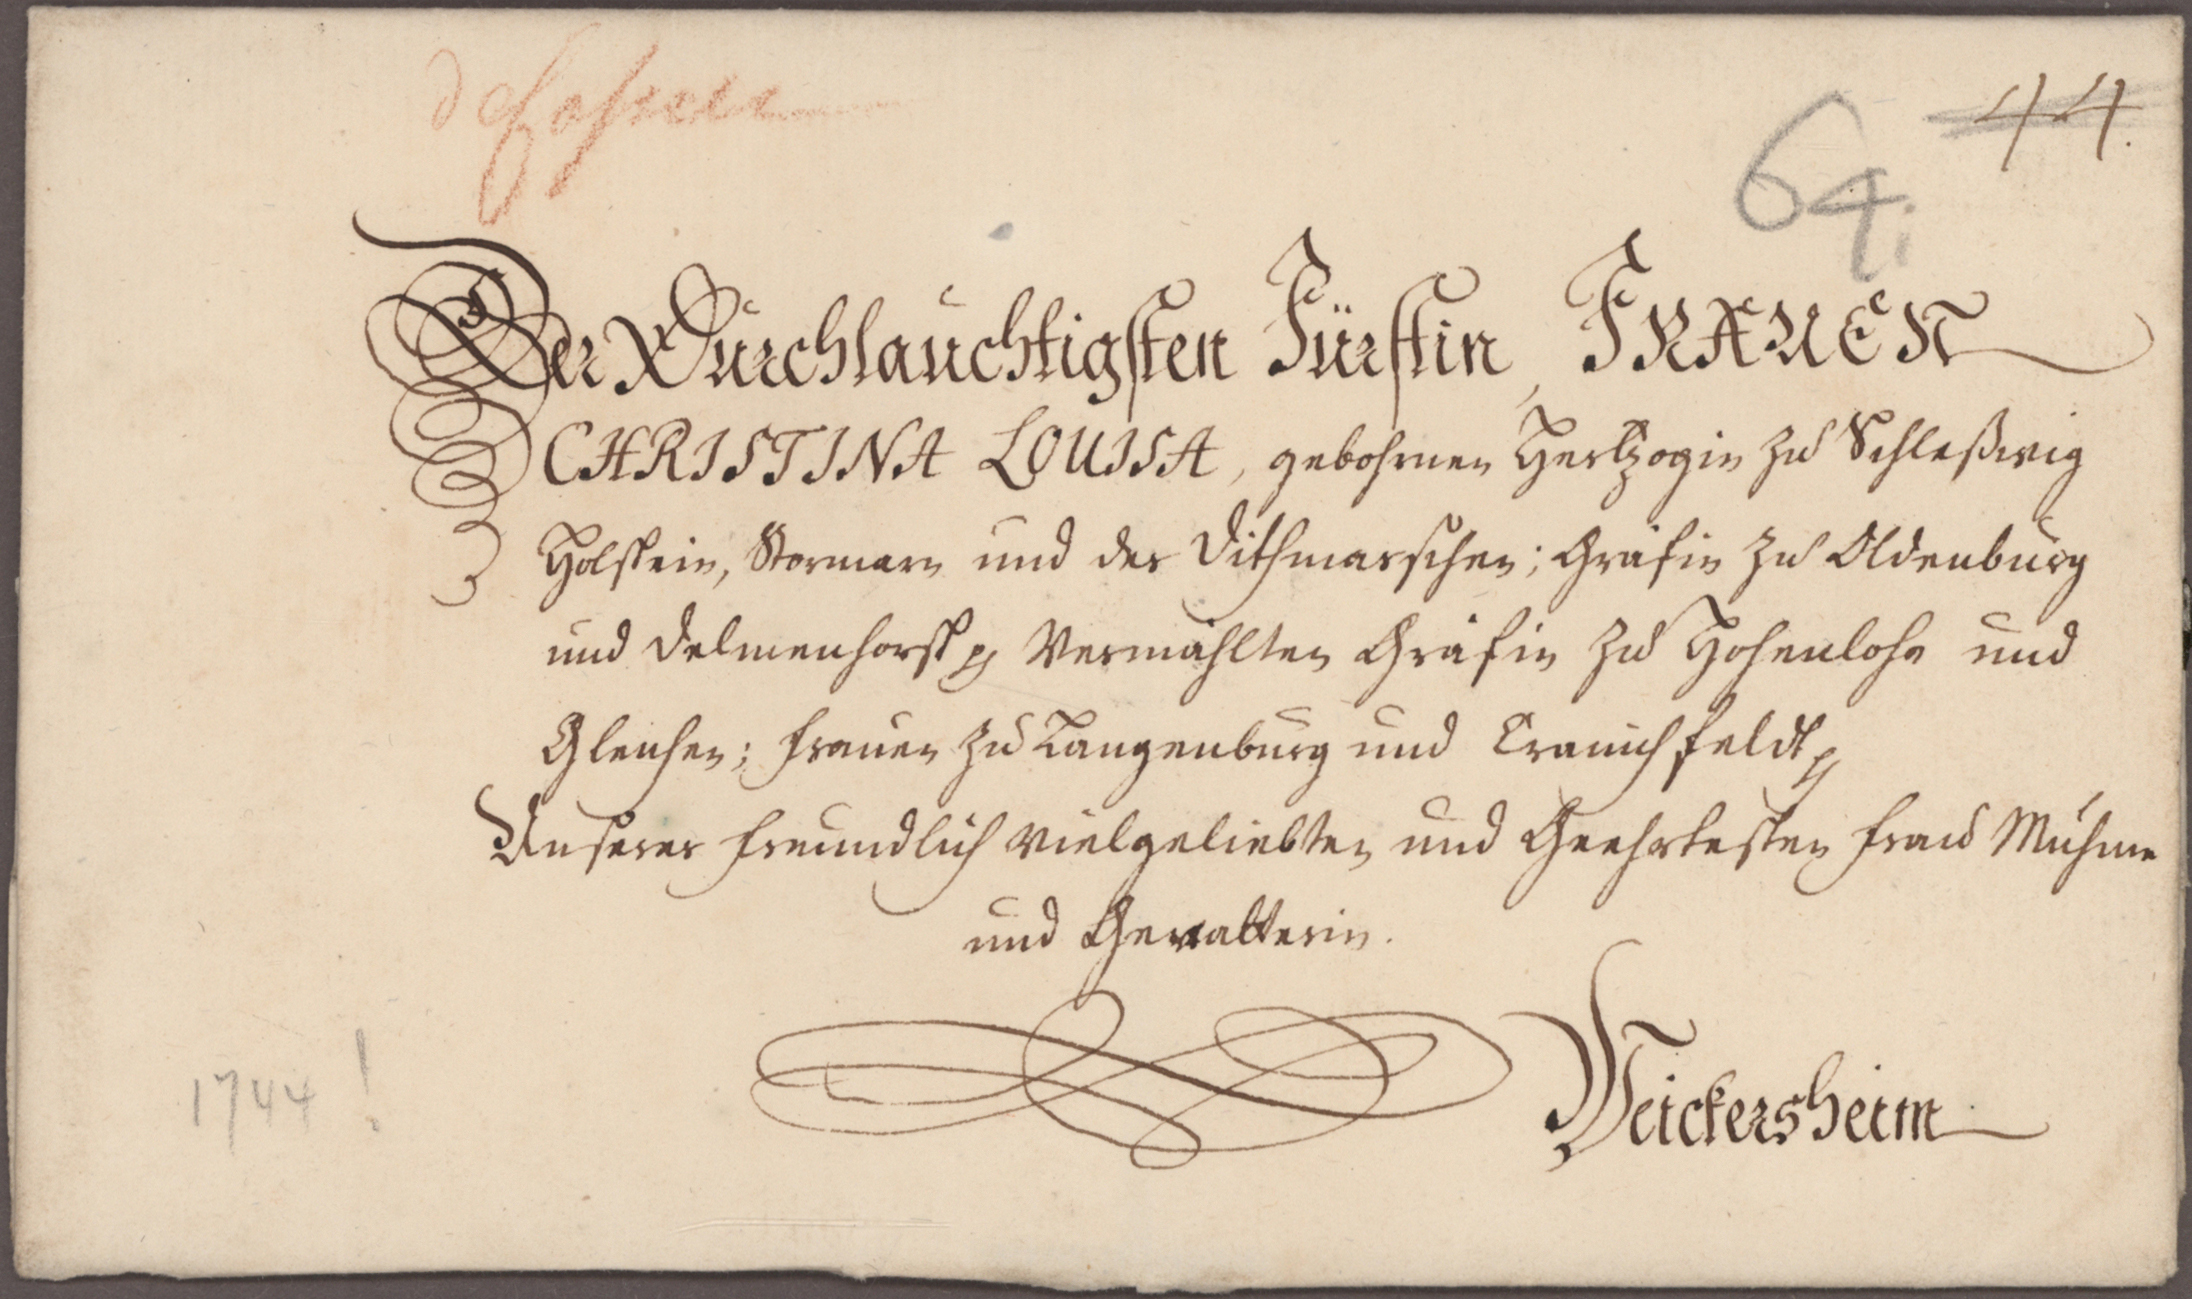 44.
64.
Der Durchlauchtigsten Fürstin, FRAUEN
CHRISTINA LOUISA, gebohrnen Hertzogin zu Schleßwig
Holstein, Stormarn und der Dithmarschen; Gräfin zu Oldenburg
und Delmenhorst p Vermählten Gräfin zu Hohenlohe und
Gleichen; Frauen zu Langenburg und Cranichfeldt p
Unserer freundlich vielgeliebten und Geehrtesten Frau Muhme
und Gevatterin.
Weickersheim
1744 !